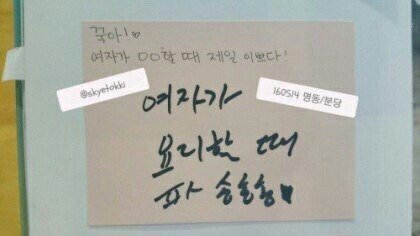 꾹아!♡
여자가 ㅁㅁ할 때 제일 이쁘다!
@skyetokki
160514 명동/분당
여자가
요리할 때
파 송송송♥